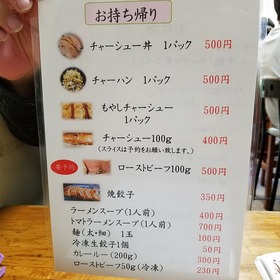 お持ち帰り
チャーシュー丼 1パック 500円
チャーハン 1パック 500円
もやしチャーシュー
1パック 500円
チャーシュー100g 400円
(スライスは予約をお願い致します。)
要予約 ローストビーフ100g 500円
焼餃子 350円
ラーメンスープ(1人前) 400円
トマトラーメンスープ(1人前) 700円
麺(太・細) 1玉 100円
冷凍生餃子1個 50円
カレールー(200g) 300円
ローストビーフ50g(冷凍) 230円